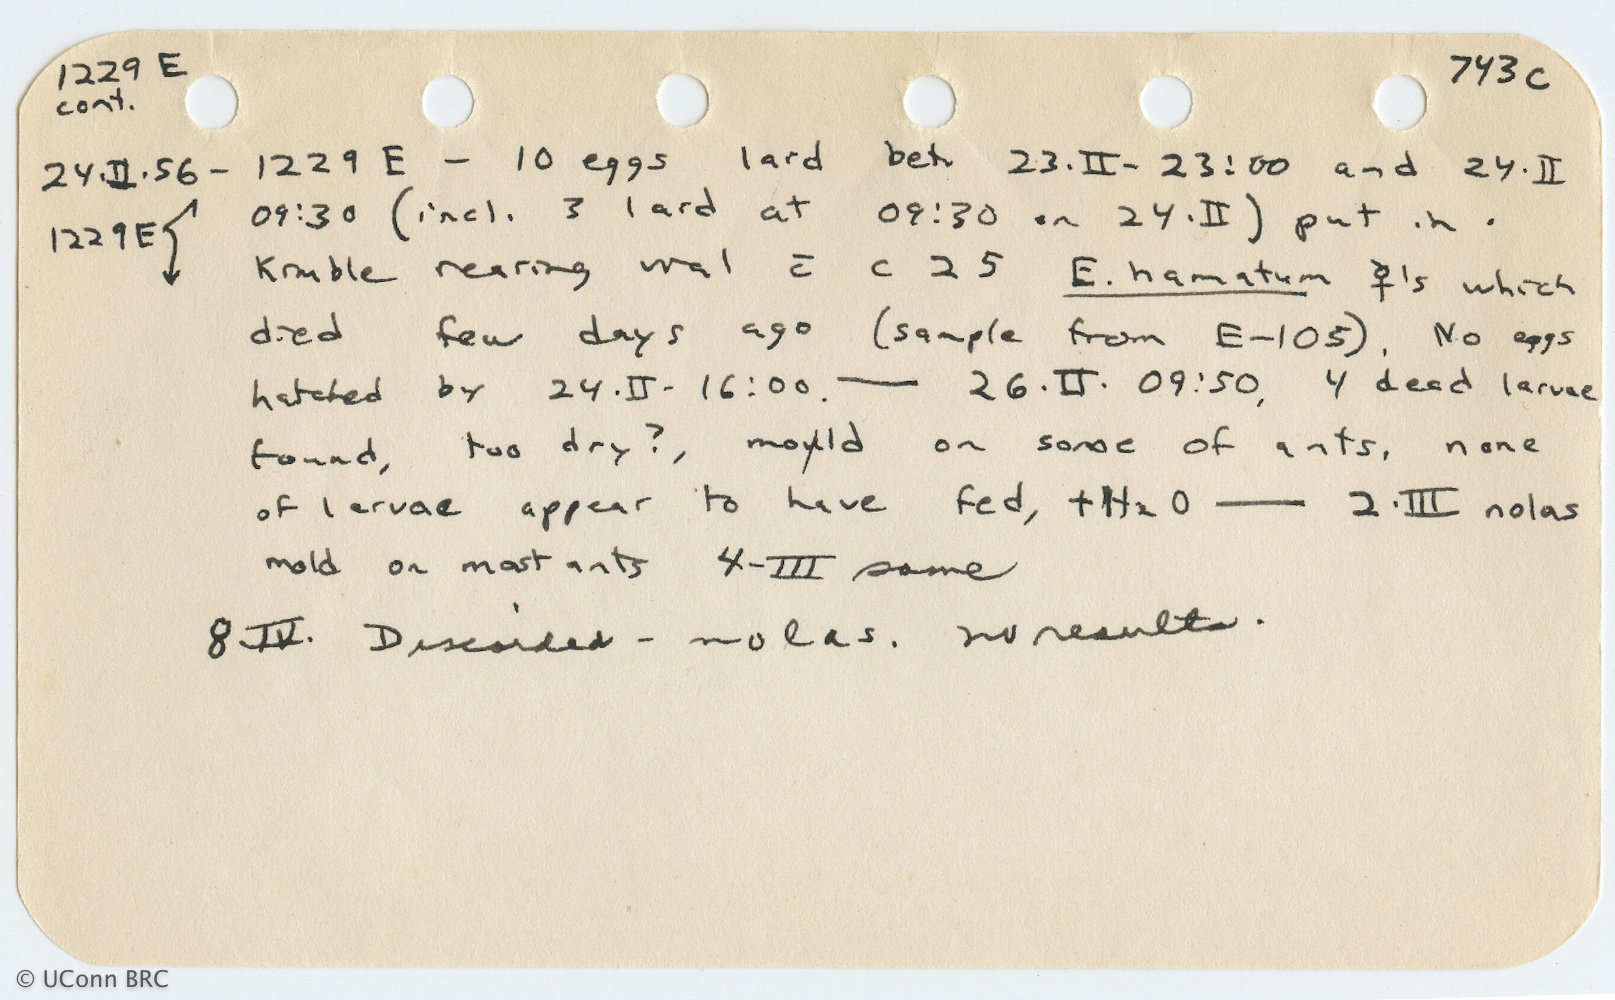 1229 E
cont.
743 C
24.II.56 - 1229 E - 10 eggs laid betw 23.II - 23:00 and 24.II
1229E 09:30 (incl. 3 laid at 09:30 on 24.II) put in
Krmble rearing vial c̄ c 25 E. hamatum ☿'s which
died few days ago (sample from E-105). No eggs
hatched by 24.II - 16:00. — 26.II. 09:50, 4 dead larvae
found, too dry?, mould on some of ants, none
of larvae appear to have fed, + H2O — 2.III nolas
mold on most ants 4-III same
8.IV. Discarded - nolas. no results.
© UConn BRC